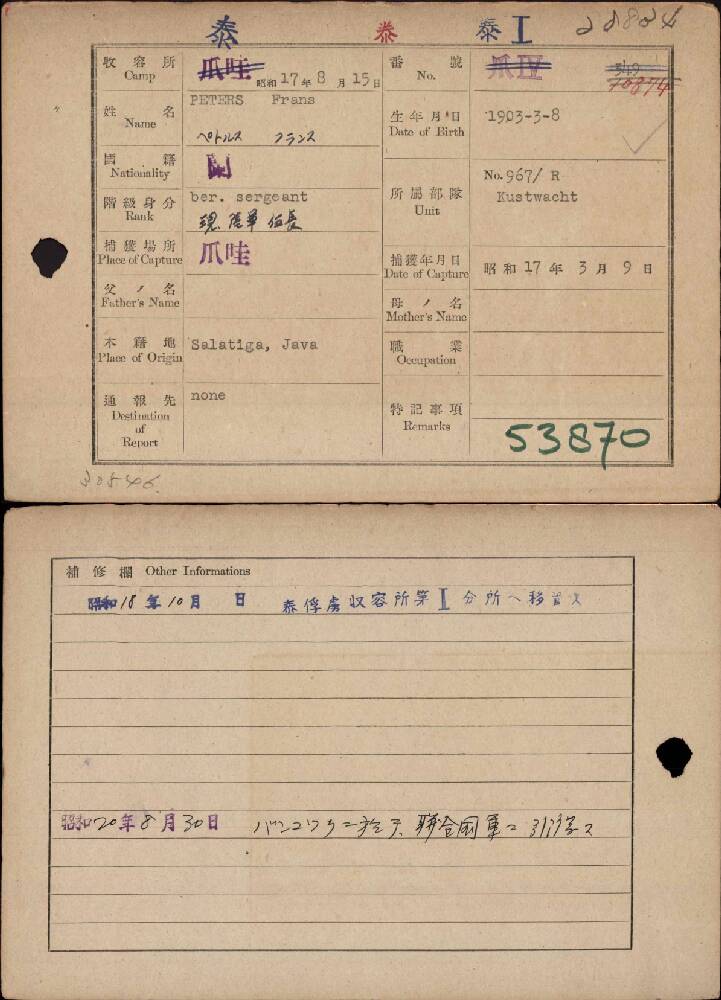 泰 泰 泰 I
收容所 Camp 爪哇 昭和17年8月15日
番號 No. 爪IV 10874
姓名 Name PETERS Frans
ペトルス フランス
生年月日 Date of Birth 1903-3-8
國籍 Nationality 蘭
階級身分 Rank ber. sergeant
所属部隊 Unit No. 967/ R
Kustwacht
捕獲場所 Place of Capture 爪哇
捕獲年月日 Date of Capture 昭和17年3月9日
父ノ名 Father's Name
母ノ名 Mother's Name
本籍地 Place of Origin Salatiga, Java
職業 Occupation
通報先 Destination of Report none
特記事項 Remarks
53870
30846
補修欄 Other Informations
昭和18年10月 日 泰俘虜収容所第I分所ヘ移管ス
昭和20年8月30日 バンコックニ於テ聯合國軍ニ引渡ス